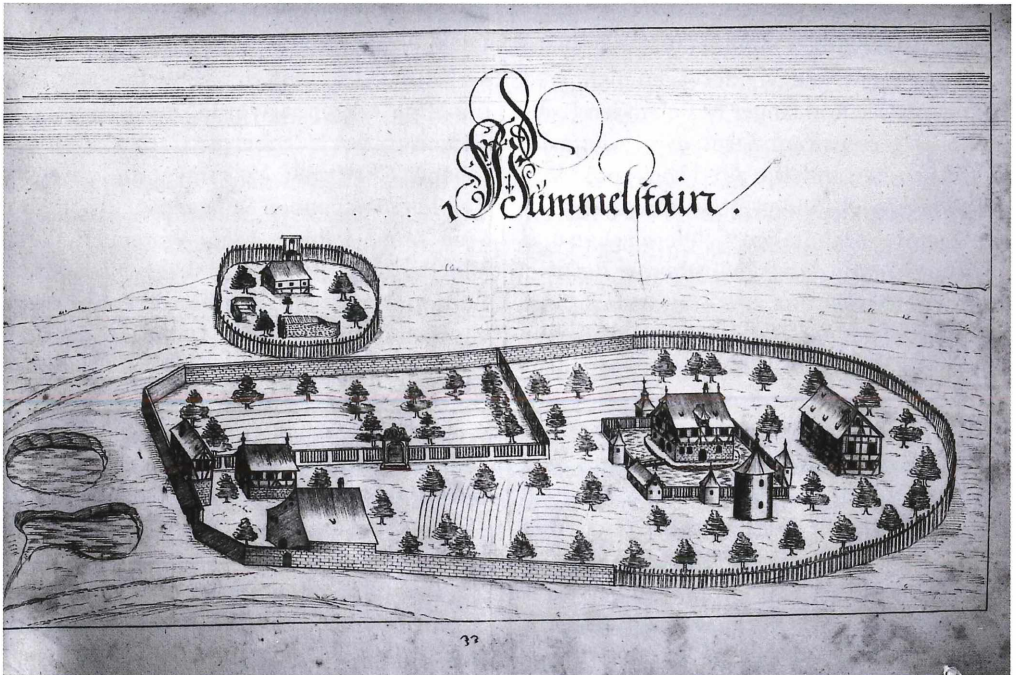 Hümmelſtain.